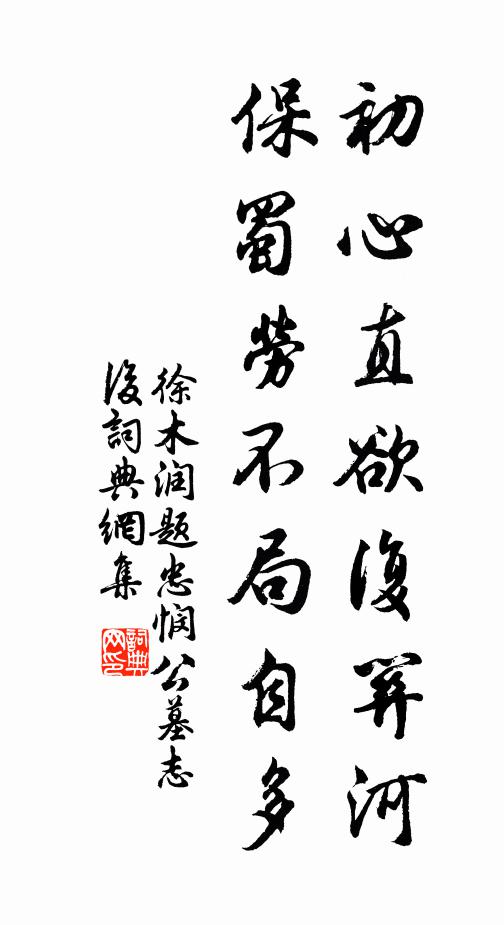 初心直欲復關河
保蜀勞不局自多
徐木润題忠悯公墓志
後詞典網集
詞典网印